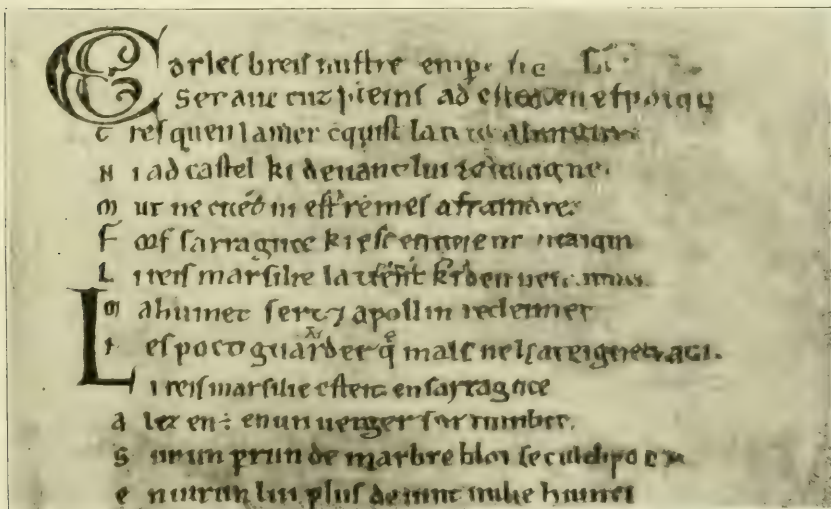 Carles li reis nostre
Set anz pleins ad estet en espaigne
Tresquen la mer cquist la
Ni ad castel ki deuant lui remaigne.
Mur ne citet ni est remes a fraindre.
Fors sarraguce ki est en
Li reis marsilie la tient ki deu
Mahumet sert 7 apollin recleimet
Nes poet guarder q mals ne lateignet. aoi.
Li reis marsilie esteit en sarraguce
Alez en est en un uerger
Sur un perrun de marbre bloi se culchet
Enuirun lui plus de uint milie humes